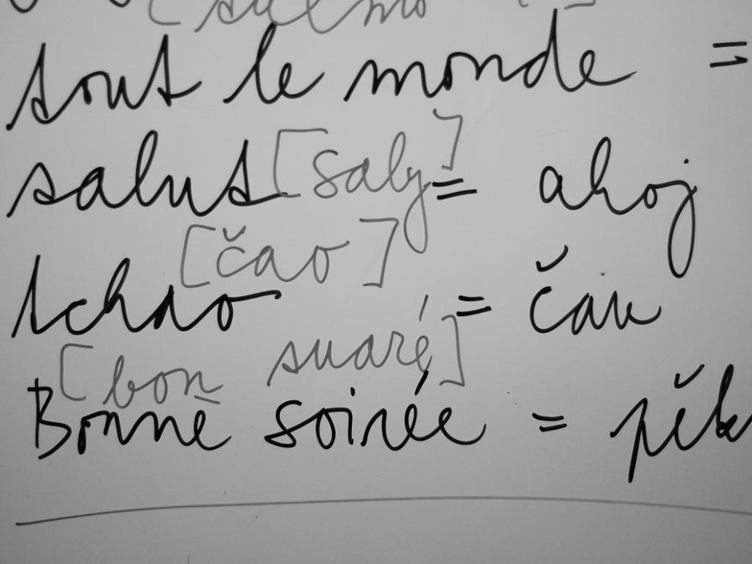 tout le monde =
salut [saly] = ahoj
[čao]
tchao = čau
[bon suaré]
Bonne soirée = pěk